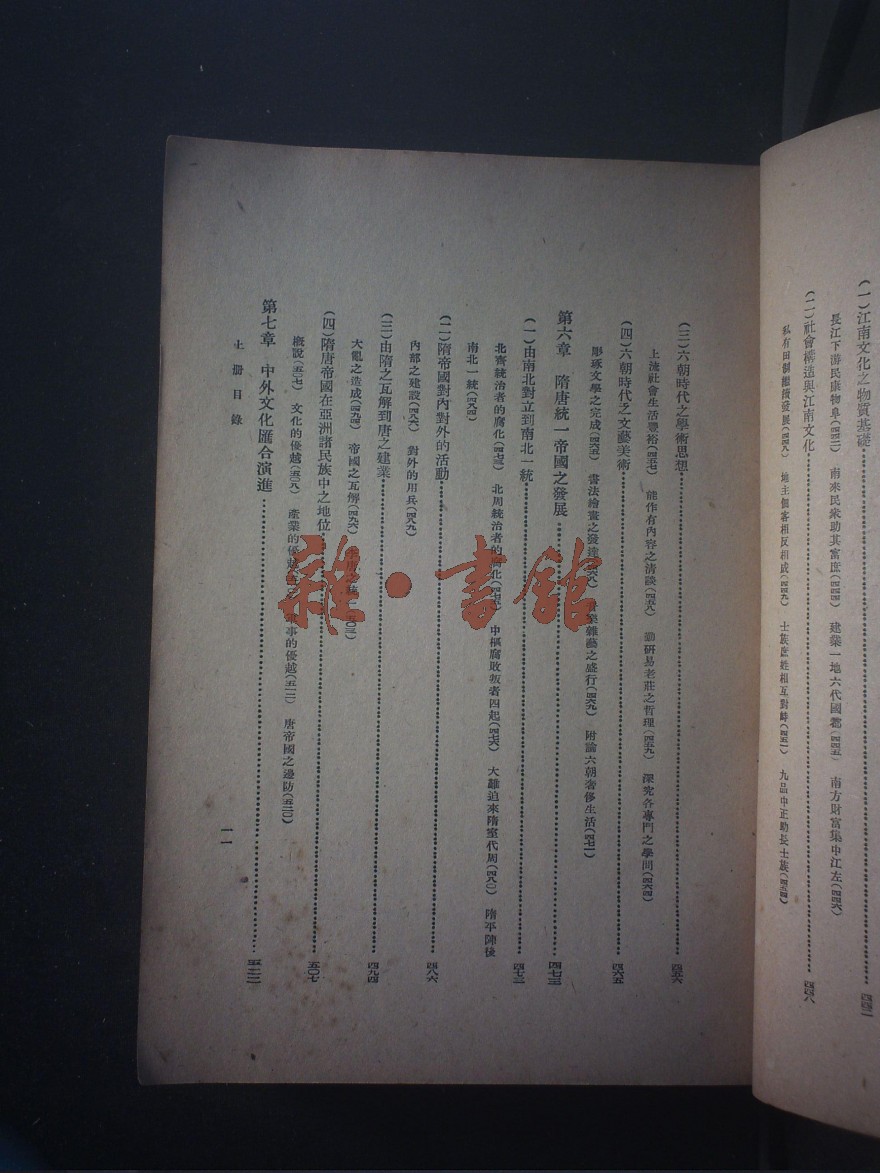 (一)江南文化之物質基礎……四四二
長江下游民康物阜(四四二) 南來民衆助其富庶(四四四) 建業一地六代國都(四四五) 南方財富集中江左(四四六)
(二)社會構造與江南文化……四四八
私有田制繼續發展(四四九) 地主佃客相反相成(四四九) 士族庶姓相互對峙(四五一) 九品中正助長士族(四五四)
(三)六朝時代之學術思想……四五六
上流社會生活豐裕(四五七) 能作有內容之清談(四五八) 勤研易老莊之哲理(四五九) 深究各專門之學問(四六四)
(四)六朝時代之文藝美術……四六五
彫琢文學之完成(四六五) 書法繪畫之發達 雜藝之盛行(四六九) 附論六朝奢侈生活(四七一)
第六章 隋唐統一帝國之發展……四七三
(一)由南北對立到南北一統……四七三
北齊統治者的腐化(四七三) 北周統治者的腐化 中樞腐敗叛者四起(四七六) 大難迫來隋室代周(四八〇) 隋平陳後
南北一統(四八四)
(二)隋帝國對內對外的活動……四八六
內部之建設(四八六) 對外的用兵(四八九)
(三)由隋之瓦解到唐之建業……四九四
大亂之造成(四九四) 帝國之瓦解(四九六)
(四)隋唐帝國在亞洲諸民族中之地位……五〇七
概說(五〇七) 文化的優越(五〇八) 產業的優越 軍事的優越(五一二) 唐帝國之邊防(五二〇)
第七章 中外文化匯合演進……五二二
上册目錄
一一
雜·書館